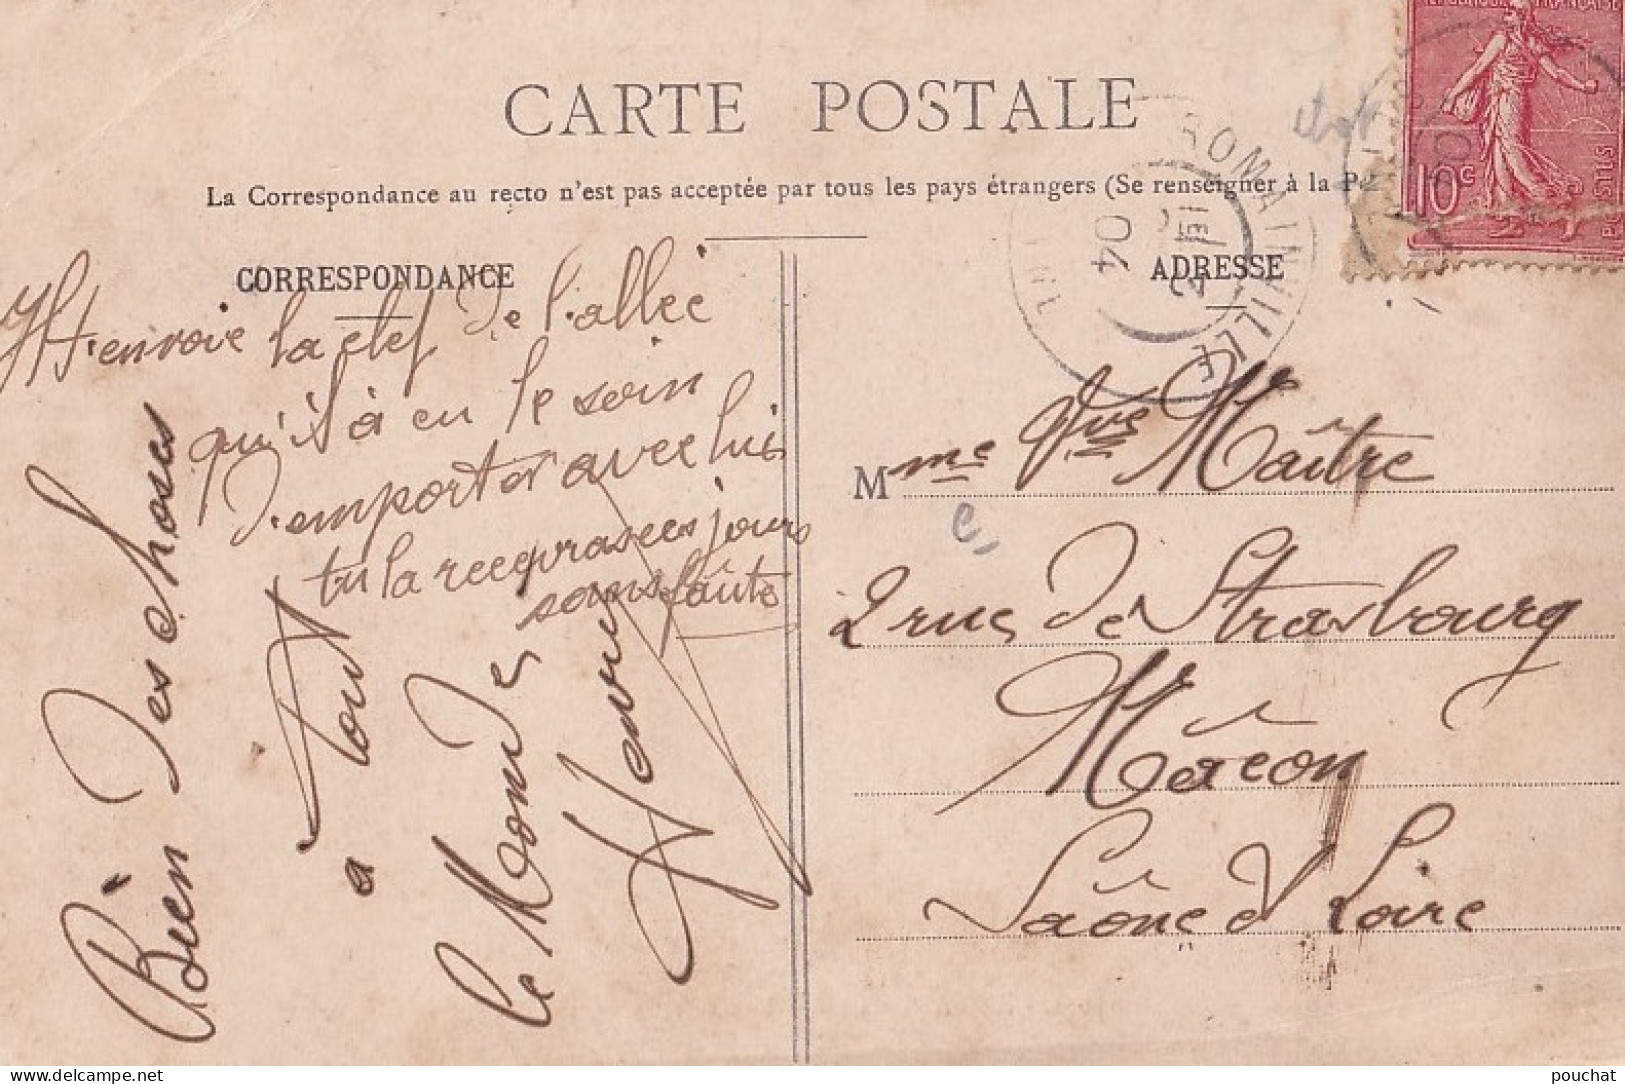 CARTE POSTALE
La Correspondance au recto n'est pas acceptée par tous les pays étrangers (Se renseigner à la P
CORRESPONDANCE
ADRESSE
t'envoie la clef de l'allée
qu'il à eu le soin
d'emporter avec lui
tu la receveras ces jours
sans faute
Bien des choses
à tout
le Monde
Henri
Mme Vve Maître
2 rue de Strasbourg
Mâcon
Saône & Loire
ROMAINVILLE
04
10c
POSTES
delcampe.net
pouchat